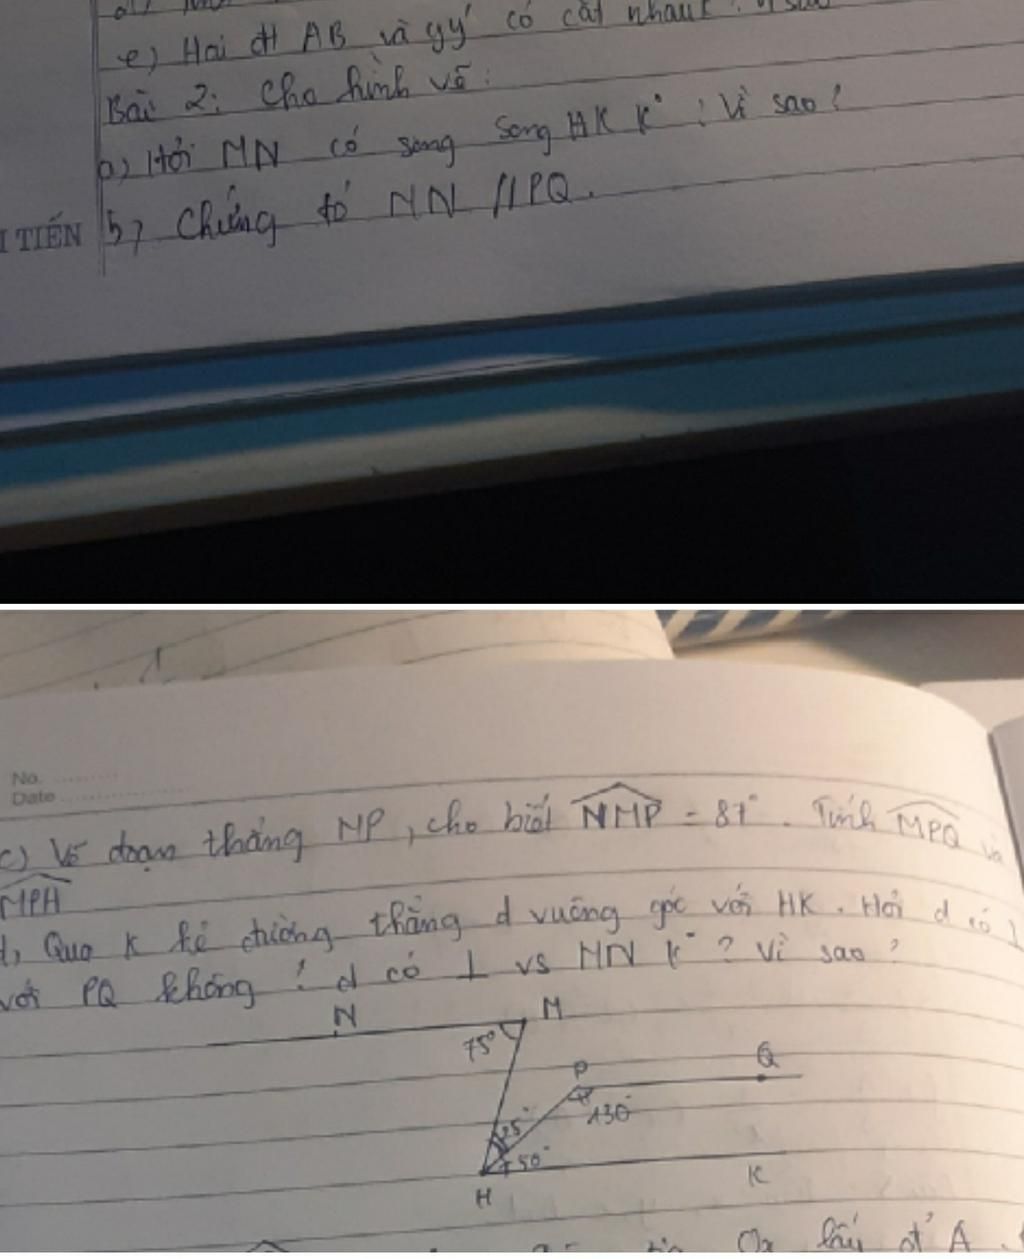 e) Hai đt AB và yy' có cắt nhau k°
Bài 2: Cho hình vẽ:
a) Hỏi MN có song song HK k° ? Vì sao?
I TIẾN
b) Chứng tỏ MN // PQ.
No.
Date
c) Vẽ đoạn thẳng MP, cho biết NMP = 87°. Tính MPQ và
MPH
d, Qua K kẻ đường thẳng d vuông góc với HK. Hỏi d có ⊥
với PQ không ? d có ⊥ vs MN k° ? Vì sao ?
N M
75°
P Q
130°
25°
50°
H K
Ox lấy đ' A